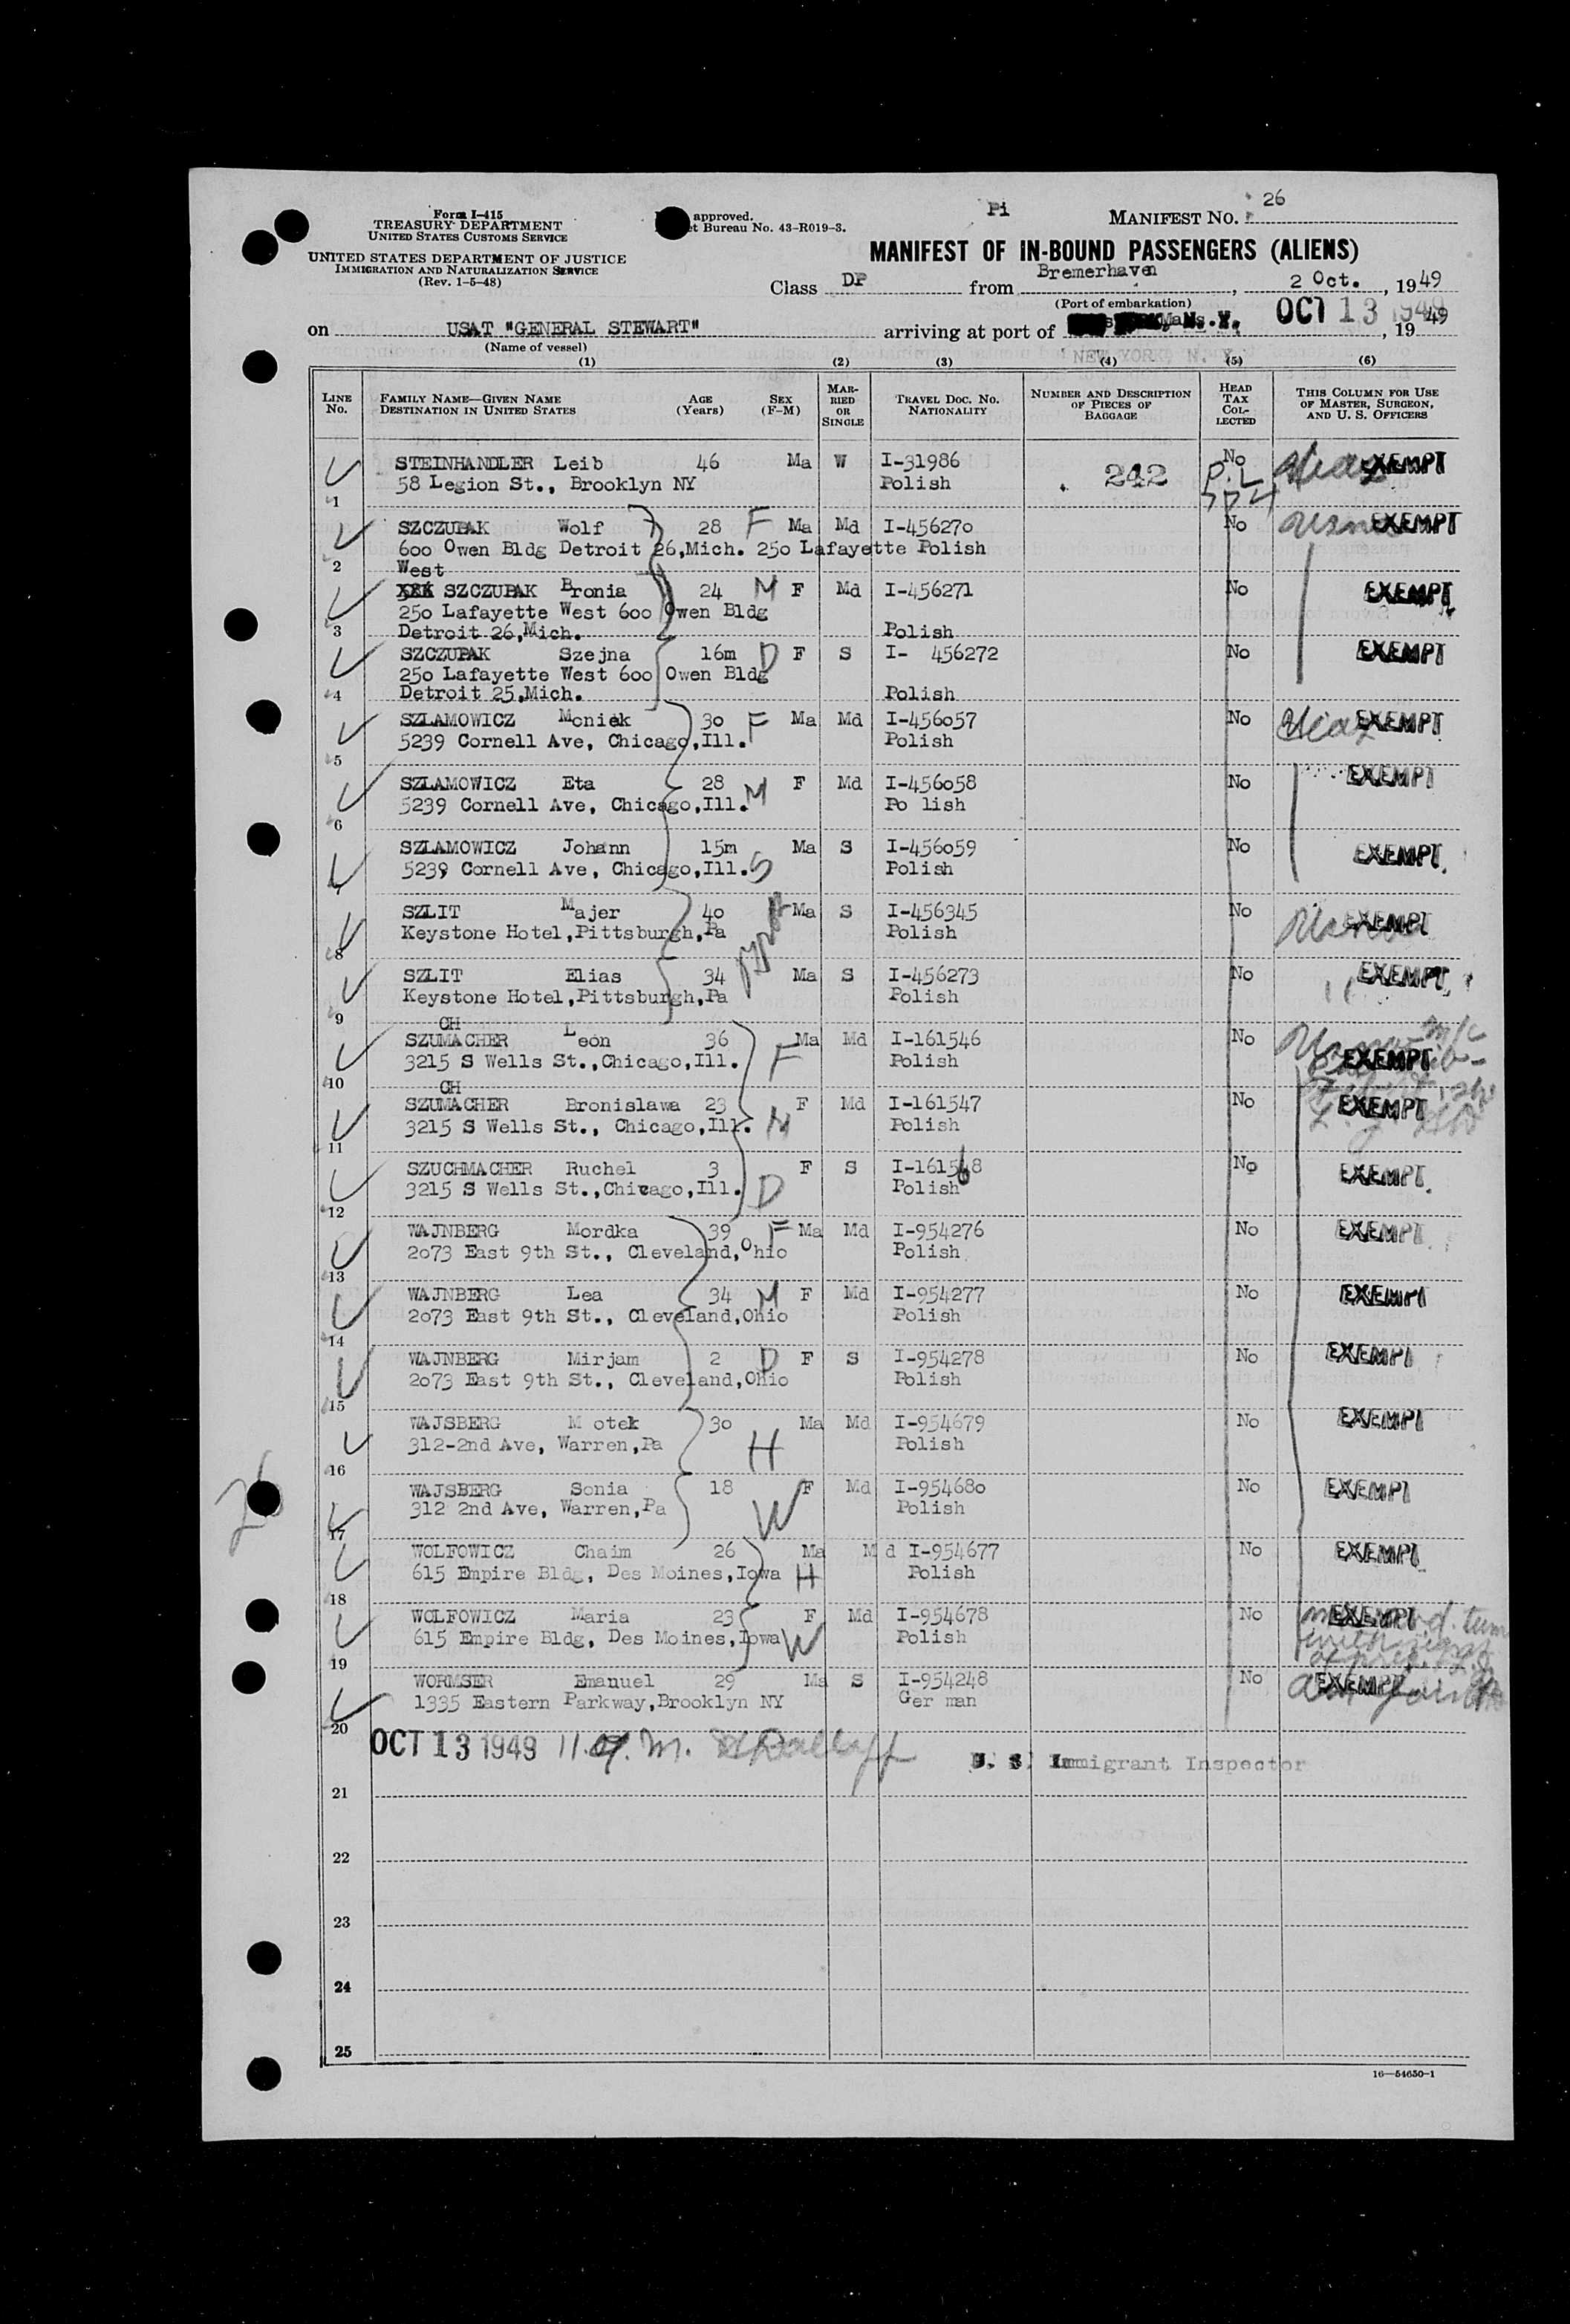 Form I-415
TREASURY DEPARTMENT
UNITED STATES CUSTOMS SERVICE
UNITED STATES DEPARTMENT OF JUSTICE
IMMIGRATION AND NATURALIZATION SERVICE
(Rev. 1-5-48)
approved.
et Bureau No. 43-R019-3.
Pi
MANIFEST NO. 26
MANIFEST OF IN-BOUND PASSENGERS (ALIENS)
Class DP from Bremerhaven, 2 Oct., 1949
(Port of embarkation)
on USAT "GENERAL STEWART" arriving at port of N.Y. OCT 13 1949, 1949
(Name of vessel)
NEW YORK, N. Y.
(1) (2) (3) (4) (5) (6)
LINE No. FAMILY NAME—GIVEN NAME DESTINATION IN UNITED STATES AGE (Years) SEX (F-M) MARRIED OR SINGLE TRAVEL DOC. NO. NATIONALITY NUMBER AND DESCRIPTION OF PIECES OF BAGGAGE HEAD TAX COLLECTED THIS COLUMN FOR USE OF MASTER, SURGEON, AND U. S. OFFICERS
STEINHANDLER Leib 46 Ma W I-31986 242 No EXEMPT
58 Legion St., Brooklyn NY Polish P.L. 774
1
SZCZUPAK Wolf 28 F Ma Md I-456270 No EXEMPT
600 Owen Bldg Detroit 26,Mich. 250 Lafayette Polish
2 West
XXX SZCZUPAK Bronia 24 M F Md I-456271 No EXEMPT
250 Lafayette West 600 Owen Bldg
3 Detroit 26,Mich. Polish
SZCZUPAK Szejna 16m D F S I- 456272 No EXEMPT
250 Lafayette West 600 Owen Bldg
4 Detroit 25,Mich. Polish
SZLAMOWICZ Moniek 30 F Ma Md I-456057 No EXEMPT
5239 Cornell Ave, Chicago,Ill. Polish
5
SZLAMOWICZ Eta 28 M F Md I-456058 No EXEMPT
5239 Cornell Ave, Chicago,Ill. Po lish
6
SZLAMOWICZ Johann 15m Ma S I-456059 No EXEMPT
5239 Cornell Ave, Chicago,Ill. S Polish
7
SZLIT Majer 40 Ma S I-456345 No EXEMPT
Keystone Hotel,Pittsburgh,Pa Polish
8
SZLIT Elias 34 Ma S I-456273 No EXEMPT
Keystone Hotel,Pittsburgh,Pa Polish
9
CH
SZUMACHER Leon 36 Ma Md I-161546 No
3215 S Wells St.,Chicago,Ill. F Polish EXEMPT
10
CH
SZUMACHER Bronislawa 23 F Md I-161547 No EXEMPT
3215 S Wells St., Chicago,Ill. M Polish
11
SZUCHMACHER Ruchel 3 F S I-161568 No EXEMPT
3215 S Wells St.,Chicago,Ill. D Polish
12
WAJNBERG Mordka 39 F Ma Md I-954276 No EXEMPT
2073 East 9th St., Cleveland,Ohio Polish
13
WAJNBERG Lea 34 M F Md I-954277 No EXEMPT
2073 East 9th St., Cleveland,Ohio Polish
14
WAJNBERG Mirjam 2 D F S I-954278 No EXEMPT
2073 East 9th St., Cleveland,Ohio Polish
15
WAJSBERG M otek 30 Ma Md I-954679 No EXEMPT
312-2nd Ave, Warren,Pa H Polish
16
WAJSBERG Sonia 18 F Md I-954680 No EXEMPT
312 2nd Ave, Warren,Pa W Polish
17
WOLFOWICZ Chaim 26 Ma M d I-954677 No EXEMPT
615 Empire Bldg, Des Moines,Iowa H Polish
18
WOLFOWICZ Maria 23 F Md I-954678 No EXEMPT
615 Empire Bldg, Des Moines,Iowa W Polish
19
WORMSER Emanuel 29 Ma S I-954248 No EXEMPT
1335 Eastern Parkway,Brooklyn NY Ger man
20
OCT 13 1949
U. S. Immigrant Inspector
21
22
23
24
25
16—54650-1
26